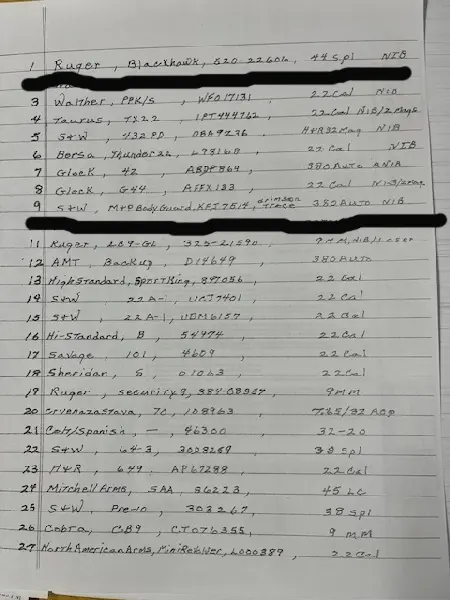 1 Ruger, Blackhawk, 520-22606, 44 Spl NIB
3 Walther, PPK/S, WF017131, 22 Cal NIB
4 Taurus, TX22, 1PT444762, 22 Cal NIB/2 Mags
5 S+W, 432PD, DBA9236, H+R32Mag NIB
6 Bersa, Thunder22, 22 Cal NIB
7 Glock, 42, ABDP864, 380 Auto ANIB
8 Glock, G44, AFFX133, 22 Cal
9 S+W, M+P BodyGuard, KFI7514, crimson trace 380 Auto NIB
11 Ruger, LC9-
12 AMT, Backup, D14649, 380 Auto
13 HighStandard, SportKing, 847056, 22 Cal
14 S+W 22A-1, 22 Cal
15 S+W, 22A-1, UDM6157, 22 Cal
16 Hi-Standard, B, 54974, 22 Cal
17 Savage, 101, 4609, 22 Cal
18 Sheridan, 01063, 22 Cal
19 Ruger, Security9, 9MM
20 CrvenaZastava, 70, 108963, 7.65/32 ACP
21 Colt/Spanish, -, 46300, 32-20
22 S+W, 64-3, 38 Spl
23 H+R, 649, AP67288, 22 Cal
24 Mitchell Arms, SAA, S6223, 45 LC
25 S+W, Pre-10, 303267, 38 Spl
26 Cobra, CB9, CT076355, 9 MM
27 North American Arms, MiniRevolver, L000389, 22 Cal